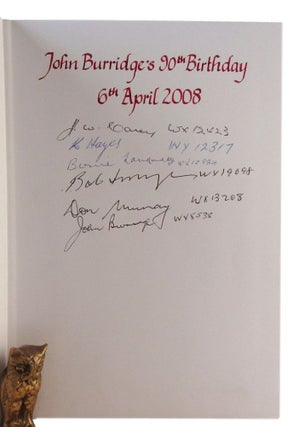 John Burridge's 90th Birthday
6th April 2008
WX 12423
K Hayes WX 12317
Bernie
Bob WX19098
Don Murray WX13208
John Burridge WX8538